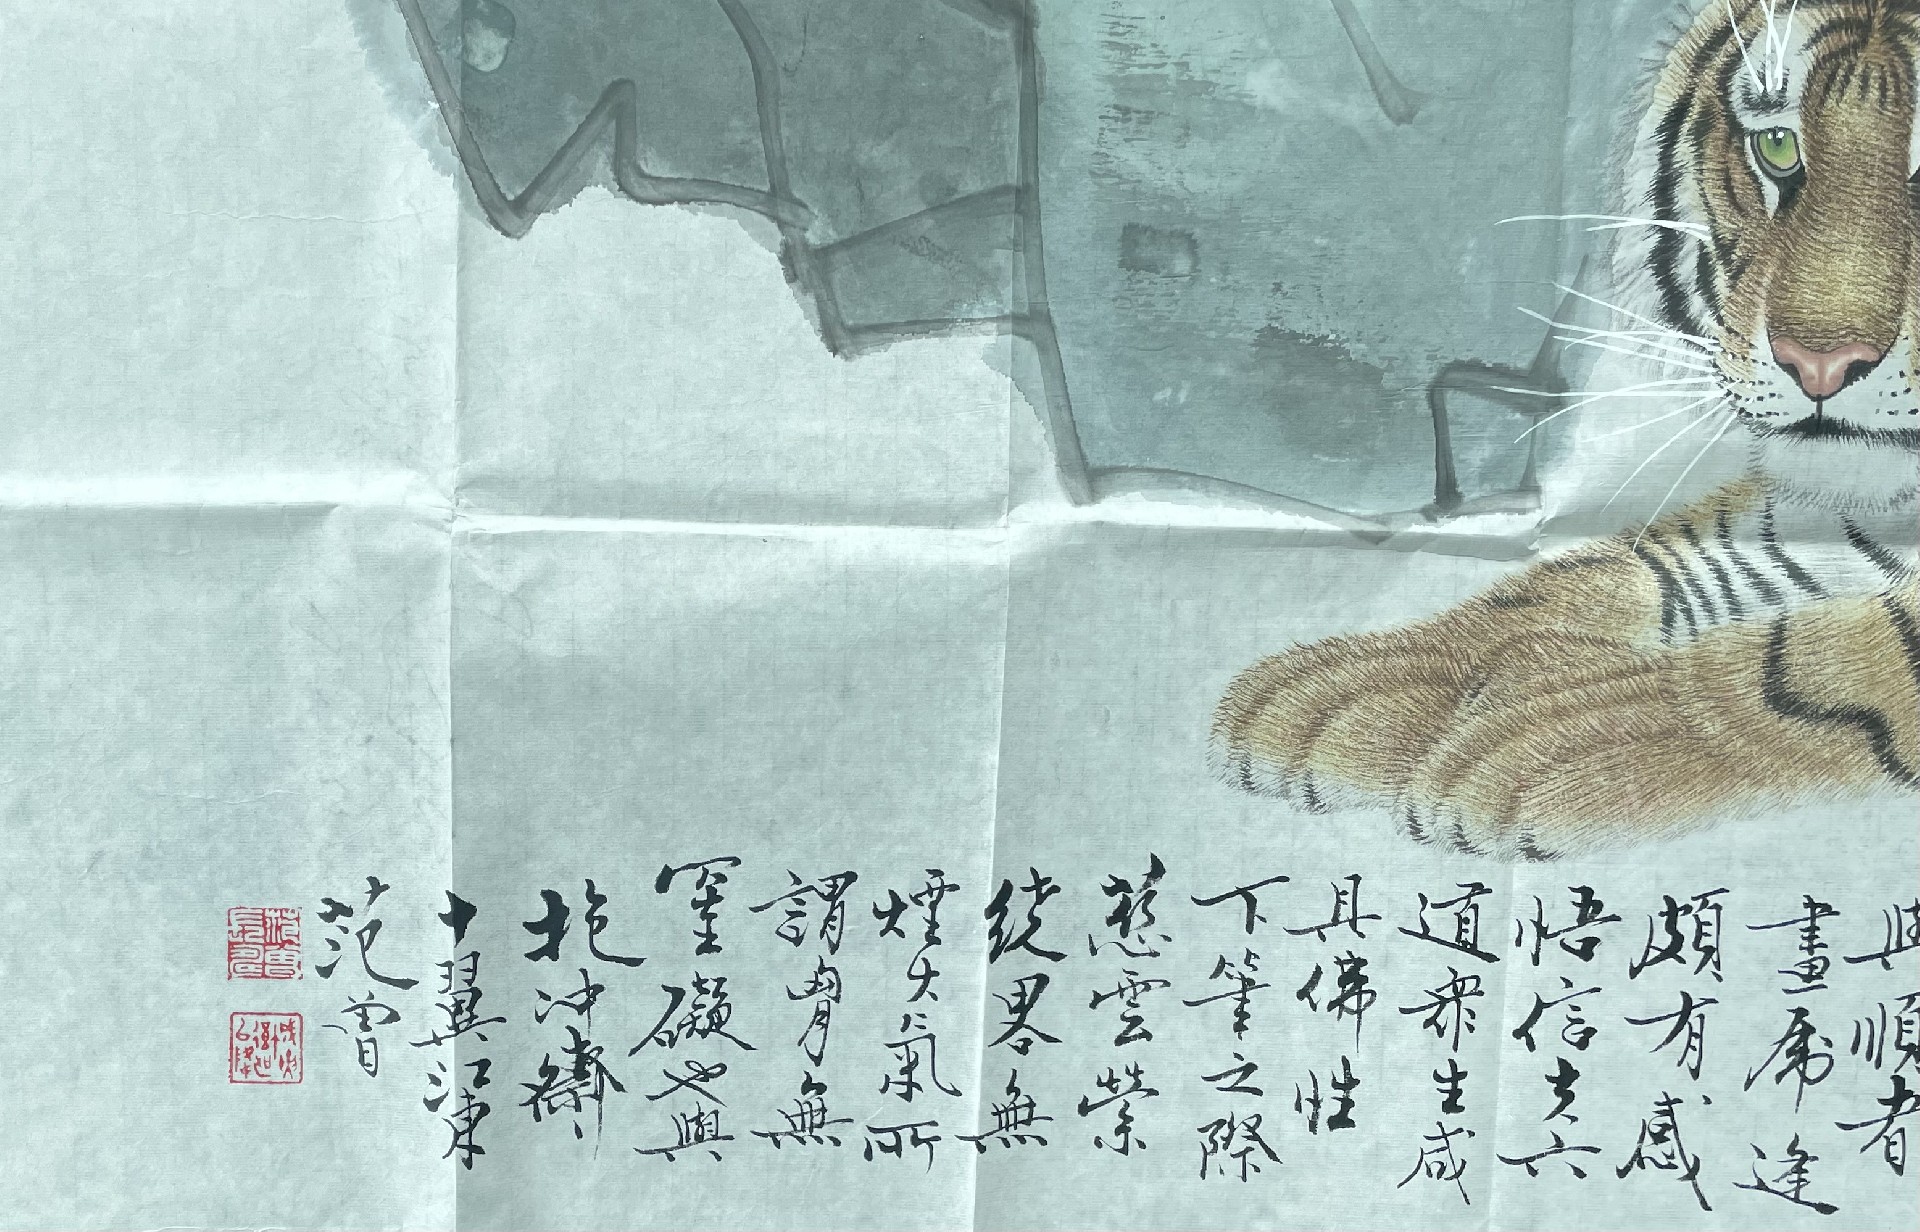 與順者
畫虎逢
頗有感
悟信夫六
道衆生咸
具佛性
下筆之際
慈雲縈
繞畧無
煙火氣所
謂胷無
罣礙也與
抱冲齋
十翼江東
范曾